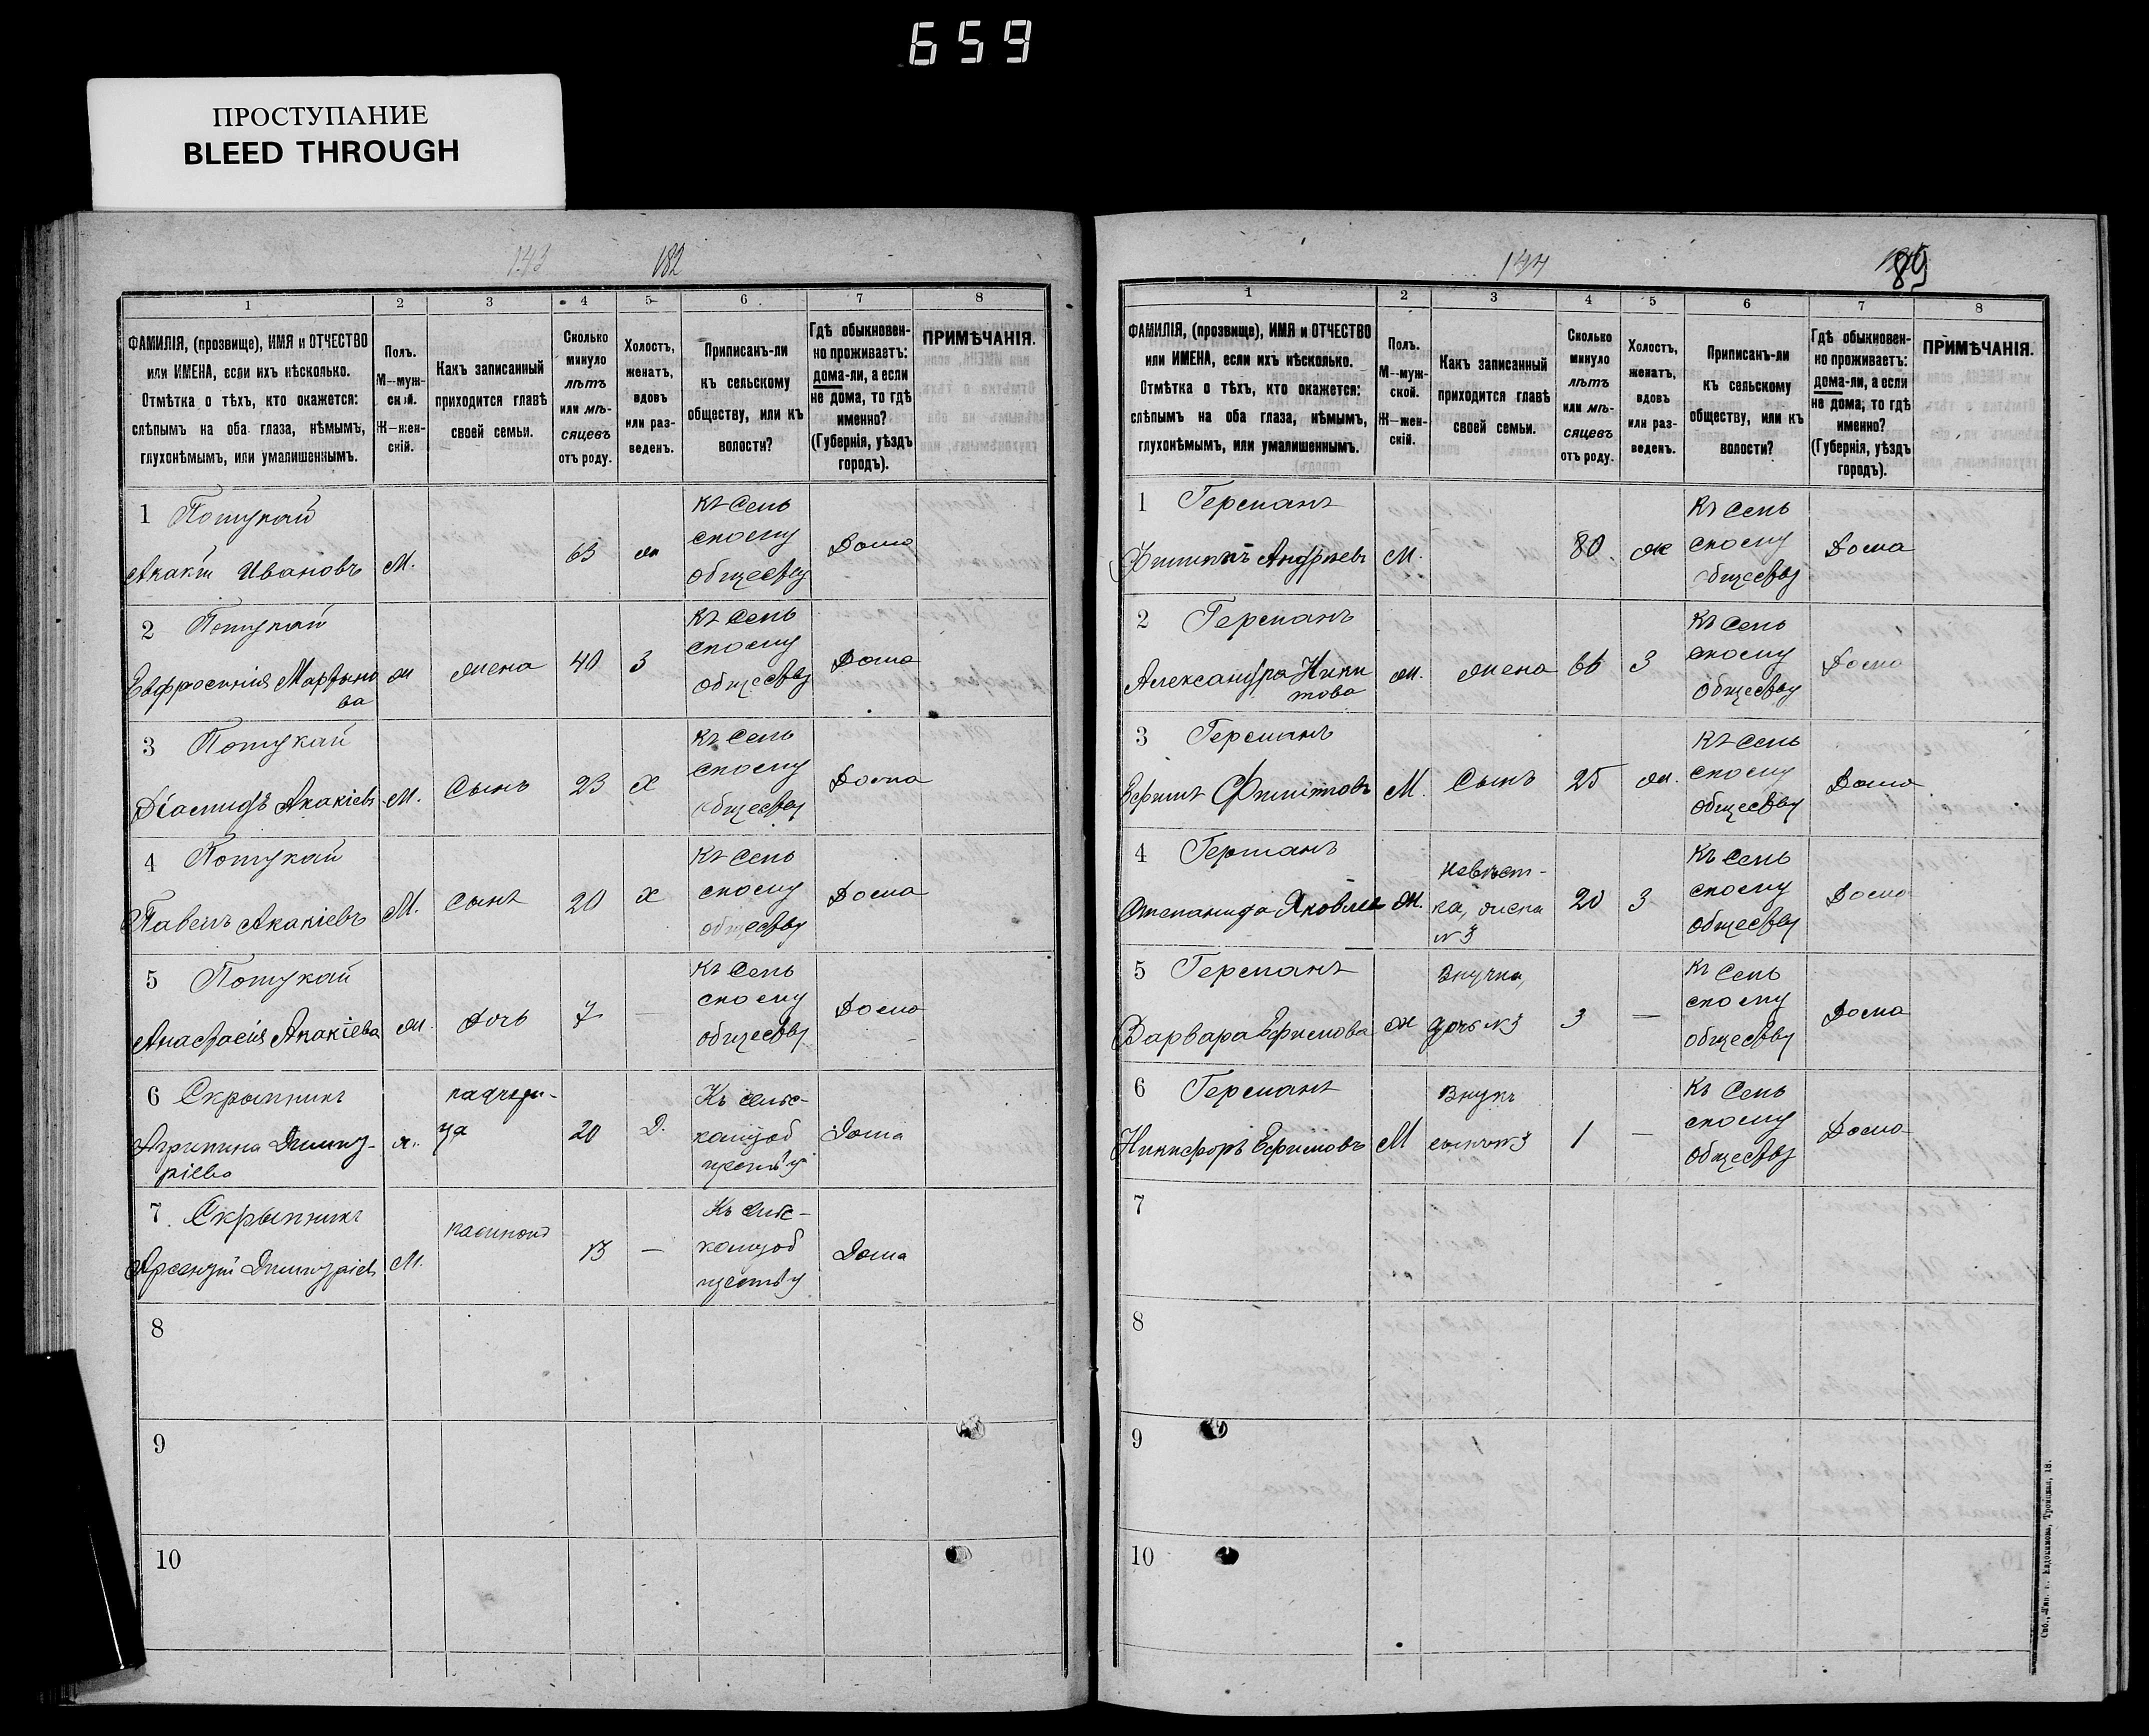 659
ПРОСТУПАНИЕ
BLEED THROUGH
143 182
1 2 3 4 5 6 7 8
ФАМИЛІЯ, (прозвище), ИМЯ и ОТЧЕСТВО
или ИМЕНА, если ихъ нѣсколько.
Отмѣтка о тѣхъ, кто окажется:
слѣпымъ на оба глаза, нѣмымъ,
глухонѣмымъ, или умалишеннымъ.
Полъ.
М—муж-
ской.
Ж—жен-
скій.
Какъ записанный
приходится главѣ
своей семьи.
Сколько
минуло
лѣтъ
или мѣ-
сяцевъ
отъ роду.
Холостъ,
женатъ,
вдовъ
или раз-
веденъ.
Приписанъ-ли
къ сельскому
обществу, или къ
волости?
Гдѣ обыкновен-
но проживаетъ:
дома-ли, а если
не дома, то гдѣ
именно?
(Губернія, уѣздъ
городъ).
ПРИМѢЧАНІЯ.
1 Потукай
Акакій Ивановъ М. 63 ж
Къ Сель
скому
обществу
Дома
2 Потукай
Евфросинія Мартыно
ва
ж жена 40 З
Къ Сель
скому
обществу
Дома
3 Потукай
Діомидъ Акакіевъ М. Сынъ 23 Х
Къ Сель
скому
обществу
Дома
4 Потукай
Павелъ Акакіевъ М. Сынъ 20 Х
Къ Сель
скому
обществу
Дома
5 Потукай
Анастасія Акакіева ж. дочь 7 —
Къ Сель
скому
обществу
Дома
6 Скрыпникъ
Агрипина Дмит-
ріева
ж.
падчери-
ца
20 Д.
Къ сельс-
комуоб
ществу
Дома
7 Скрыпникъ
Арсентій Дмитріевъ М. пасынокъ 13 —
Къ сельс-
комуоб
ществу
Дома
8
9
10
144 89
1 2 3 4 5 6 7 8
ФАМИЛІЯ, (прозвище), ИМЯ и ОТЧЕСТВО
или ИМЕНА, если ихъ нѣсколько.
Отмѣтка о тѣхъ, кто окажется:
слѣпымъ на оба глаза, нѣмымъ,
глухонѣмымъ, или умалишеннымъ.
Полъ.
М—муж-
ской.
Ж—жен-
скій.
Какъ записанный
приходится главѣ
своей семьи.
Сколько
минуло
лѣтъ
или мѣ-
сяцевъ
отъ роду.
Холостъ,
женатъ,
вдовъ
или раз-
веденъ.
Приписанъ-ли
къ сельскому
обществу, или къ
волости?
Гдѣ обыкновен-
но проживаетъ:
дома-ли, а если
не дома, то гдѣ
именно?
(Губернія, уѣздъ
городъ).
ПРИМѢЧАНІЯ.
1 Германъ
Филиппъ Андреевъ М. 80 ж
Къ Сель
скому
обществу
Дома
2 Германъ
Александра Ники
това
ж. жена 66 З
Къ Сель
скому
обществу
Дома
3 Германъ
Ефимъ Филиповъ М. Сынъ 25 ж.
Къ Сель
скому
обществу
Дома
4 Германъ
Степанида Яковлев ж.
невѣст-
ка, жена
№3
20 З
Къ Сель
скому
обществу
Дома
5 Германъ
Варвара Ефимова ж
Внучка,
дочь №3
3 —
Къ Сель
скому
обществу
Дома
6 Германъ
Никифоръ Ефимовъ М
Внукъ
сынъ №3
1 —
Къ Сель
скому
обществу
Дома
7
8
9
10